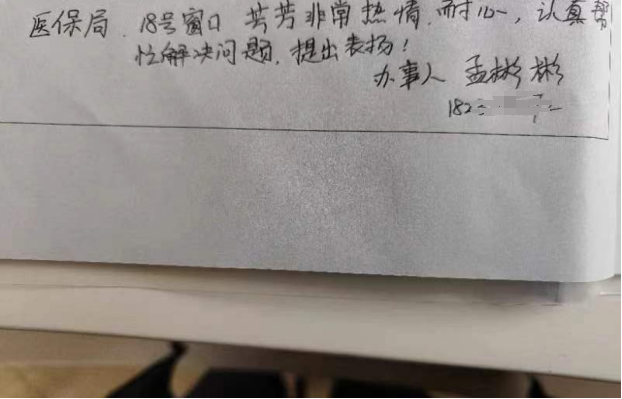 医保局 18号窗口 芸芳非常热情、耐心，认真帮
忙解决问题，提出表扬！
办事人 孟彬彬
182